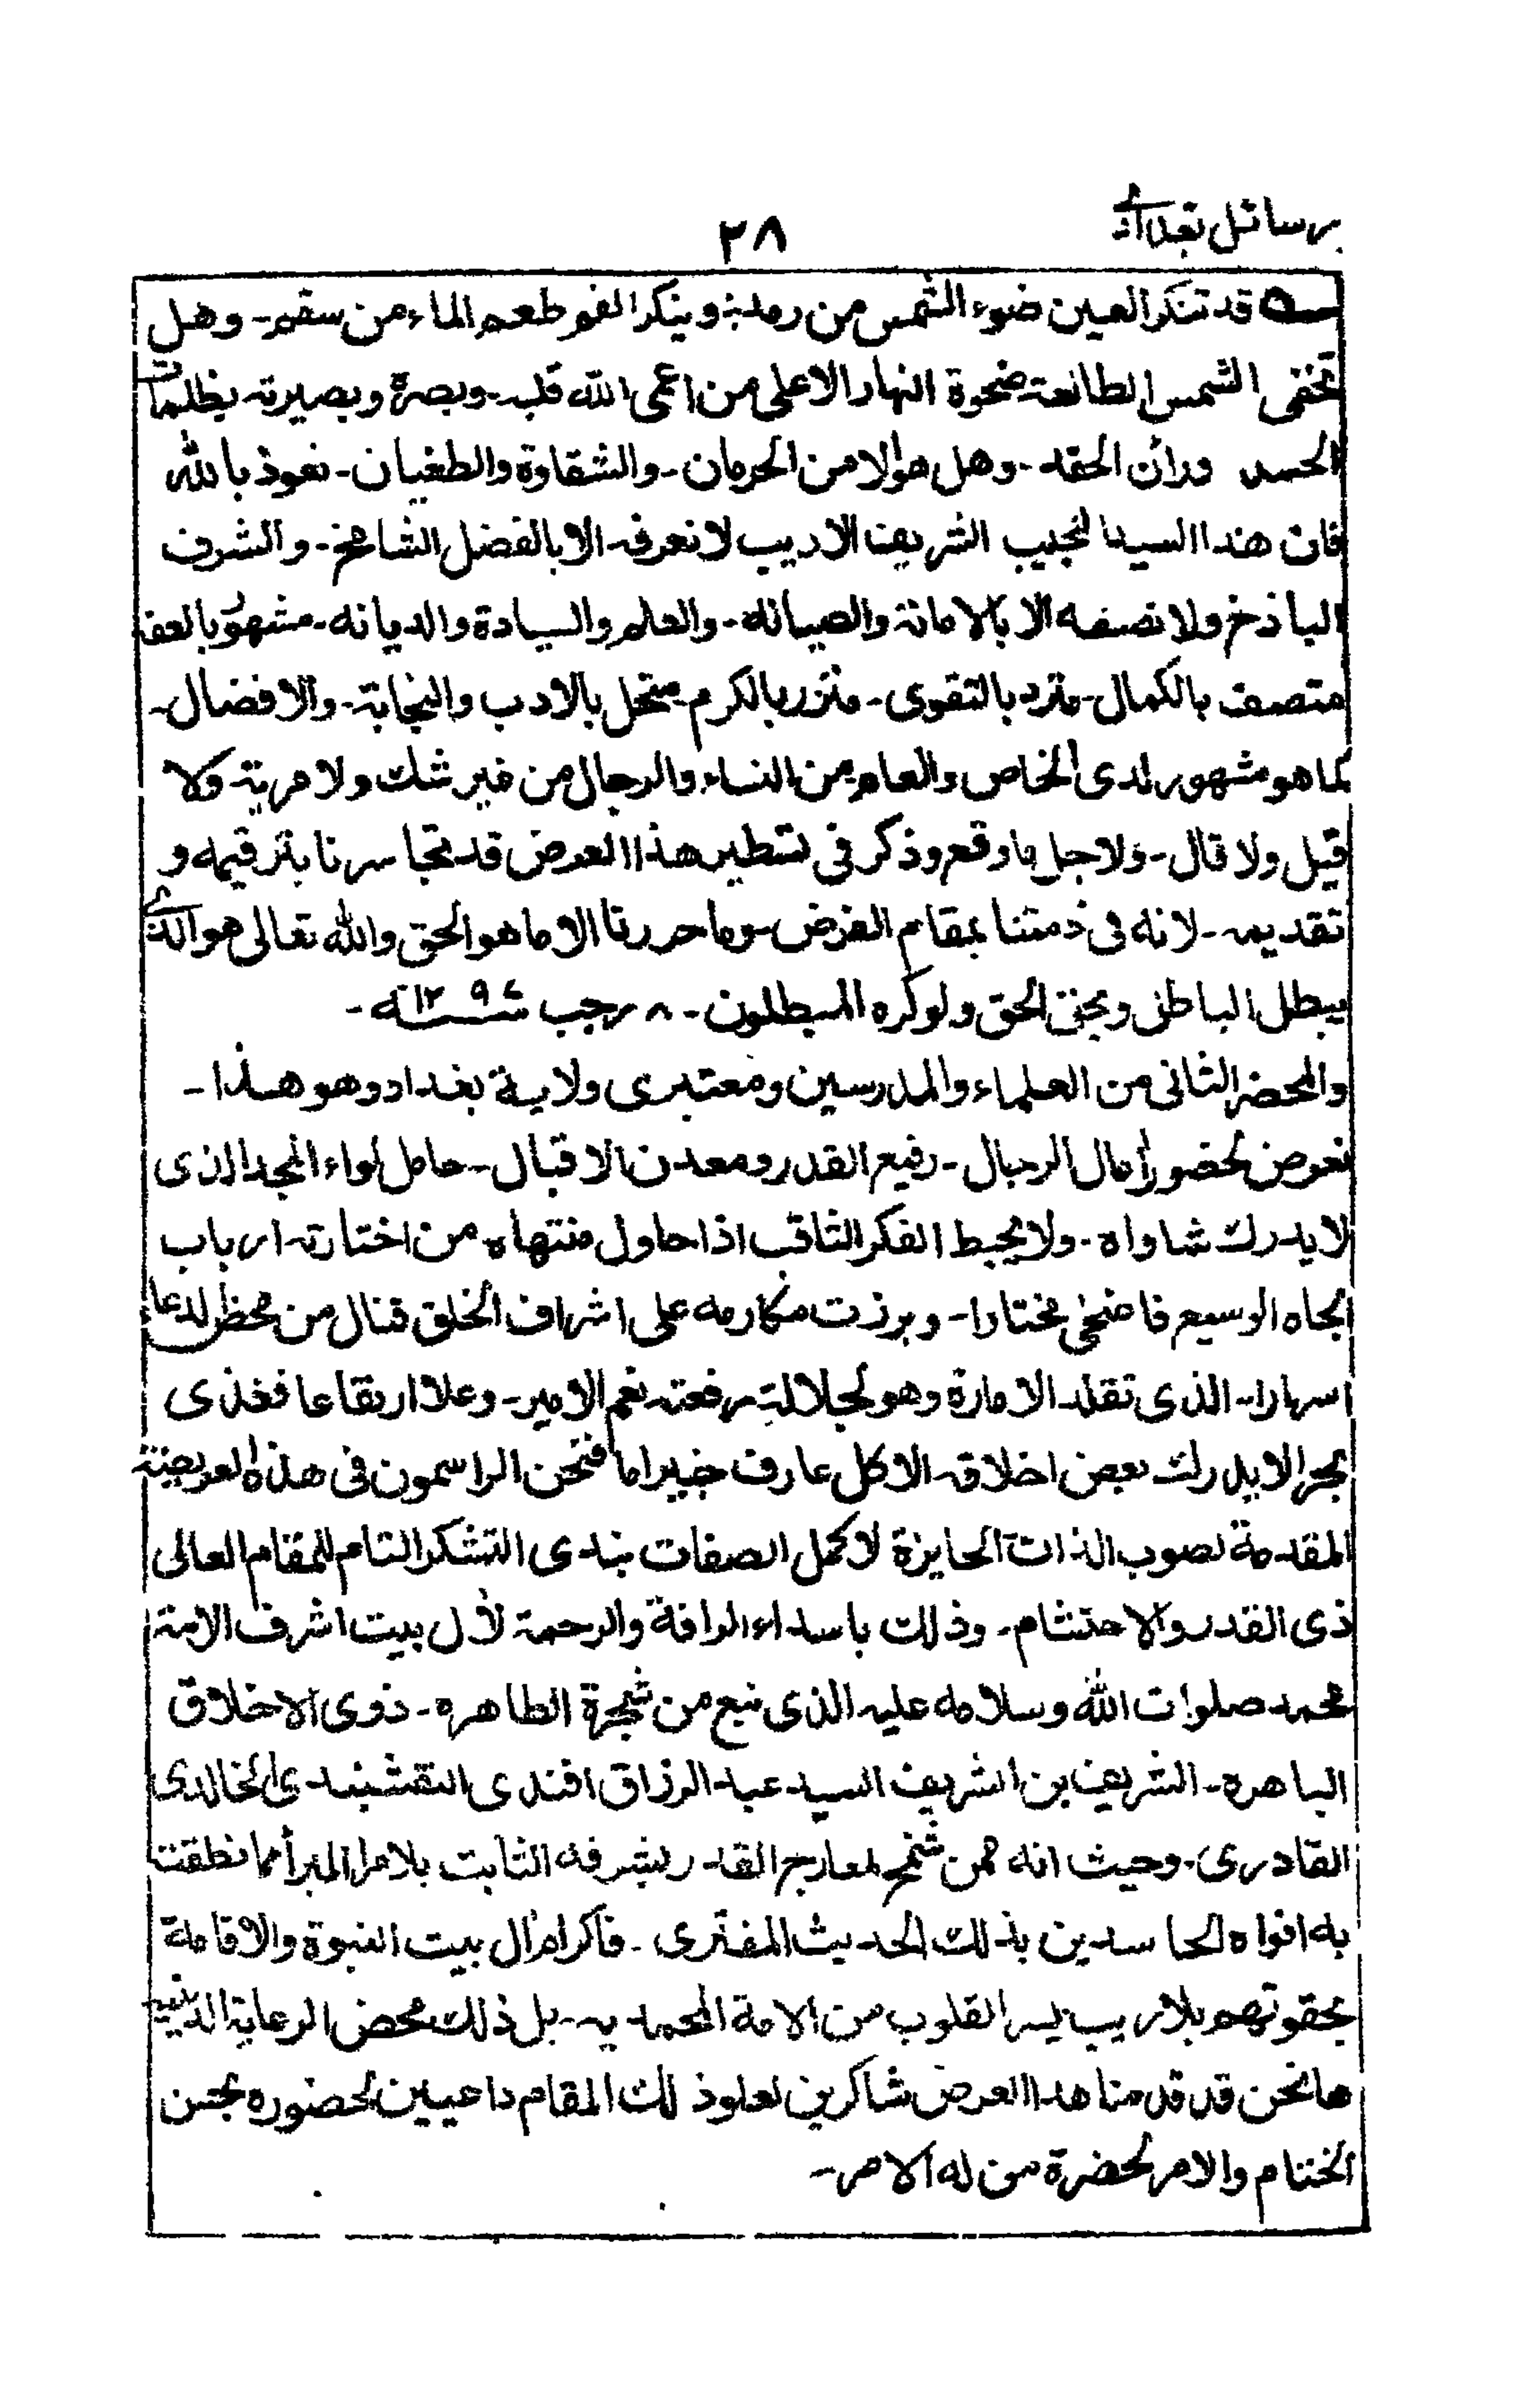 رسائل بغدادی
٢٨
قد تنكر العين ضوء الشمس من رمد: وينكر الفم طعم الماء من سقم - وهل
تخفى الشمس الطالعة ضحوة النهار الا على من اعمى الله قلبه وبصره وبصيرته بظلمات
الحسد ورائن الحقد - وهل هو الا من الحرمان - والشقاوة والطغيان - نعوذ بالله
فان هذا السيد النجيب الشريف الاديب لا نعرفه الا بالفضل الشامخ - والشرف
الباذخ ولا نصفه الا بالامانة والصيانه - والعلم والسيادة والديانه - مشهور بالعفة
متصف بالكمال - مترد بالتقوى - متزر بالكرم - متحل بالادب والنجابة - والافضال -
كما هو مشهور لدى الخاص والعام من النساء والرجال من غير شك ولا مرية ولا
قيل ولا قال - ولاجل ما وقع وذكر فى تسطير هذا العرض قد تجاسرنا بترقيمه و
تقديمه - لانه فى ذمتنا بمقام الفرض وما حررنا الا ما هو الحق والله تعالى هو الذى
يبطل الباطل ويحق الحق ولو كره المبطلون - ٨ رجب سنة ١٢٩٤ه -
والمحضر الثانى من العلماء والمدرسين ومعتبرى ولاية بغداد وهو هذا -
نعرض لحضور أمال الرجال - رفيع القدر ومعدن الاقبال - حامل لواء المجد الذى
لا يدرك شاواه - ولا يحيط الفكر الثاقب اذا حاول منتهاه من اختارته ارباب
الجاه الوسيع فاضحى مختارا - وبرزت مكارمه على اشراف الخلق فنال من محظ الدعاء
اسرارا - الذى تقلد الامارة وهو لجلالة رفعته نعم الامير - وعلا ارتفاعا فغذى
بحرا لا يدرك بعض اخلاقه الا كل عارف خبير اما فنحن الراسمون فى هذه العريضة
المقدمة لصوب الذات الحايزة لاكمل الصفات نبدى التشكر التام للمقام العالى
ذى القدر والاحتشام - وذلك باسداء الرافة والرحمة لأل بيت اشرف الامة
محمد صلوات الله وسلامه عليه الذى نبع من شجرة الطاهره - ذوى الاخلاق
الباهره - الشريف بن الشريف السيد عبد الرزاق افندى النقشبندى الخالدى
القادرى - وحيث انه ممن شمخ لمعارج القدر بشرفه الثابت بلا مرا المبرأ مما نطقت
به افواه الحاسدين بذلك الحديث المفترى - فاكرام أل بيت النبوة والاقامة
بحقوقهم بلا ريب يسر القلوب من الامة المحمديه - بل ذلك محض الرعاية الدينيه
ها نحن قد قدمنا هذا العرض شاكرين لعلو ذلك المقام داعيين لحضوره بحسن
الختام والامر لحضرة من له الامر -